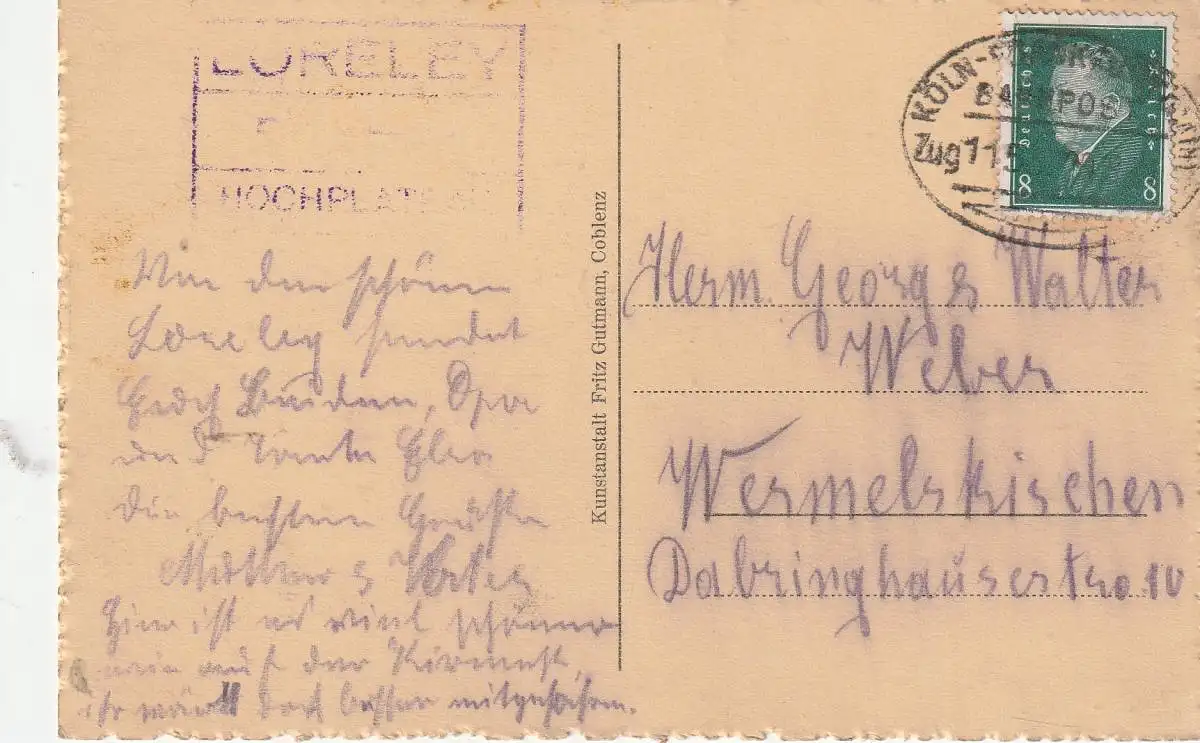 LORELEY
HOCHPLATEAU
Von der schönen
Loreley sendet
Euch Beiden, Opa
und Tante Ella
die besten Grüße
Mutter & Vater
Hier ist es viel schöner
wie auf der Kirmes,
ihr wärt doch besser mitgefahren.
Kunstanstalt Fritz Gutmann, Coblenz
KÖLN-FRANKFURT (MAIN)
BAHNPOST
Zug
Deutsches Reich
8 8
Herrn. Georg & Walter
Weber
Wermelskirchen
Dabringhauserstr. 10